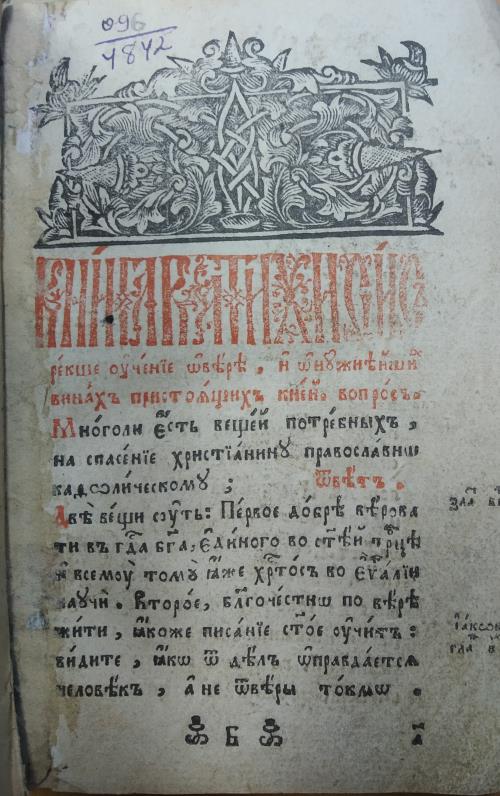 096
4842
КНИ́ГА КАТИХИСИ́СЪ
ре́кше оу҆че́нїе ѿвѣ́рѣ , и҆ ѡ҆ну́жнѣйши
вина́хъ пристоѧ́щихъ кней . вопро́съ .
Мно́голи є҆́сть веще́й потре́бныхъ ,
на спасе́нїе христїа́нину правосла́внѡ
каѳоли́ческому ; Ѿвѣ́тъ .
Двѣ̀ ве́щи су́ть : Пе́рвое до́брѣ вѣ́рова
ти въ гдⷭ҇а бг҃а , є҆ди́ного во ст҃ѣ́й трⷪ҇цѣ
и҆ всемоу̀ томꙋ̀ ꙗ҆́же хрⷭ҇то́съ во є҆ѵⷢ҇а́лїи
научѝ . Второ́е , бл҃гоче́стнѡ по вѣ́рѣ
жи́ти , ꙗ҆́коже писа́нїе ст҃о́е оу҆чи́тъ :
ви́дите , ꙗ҆́кѡ ѿ дѣ́лъ ѡ҆правда́етсѧ
человѣ́къ , а҆ не ѿвѣ́ры то́кмѡ .
Б
а҃